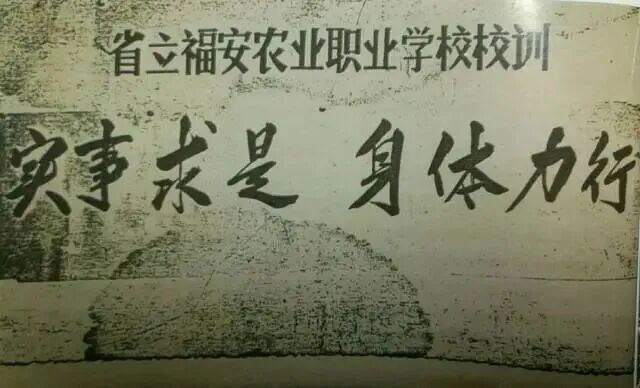 省立福安农业职业学校校训
实事求是 身体力行